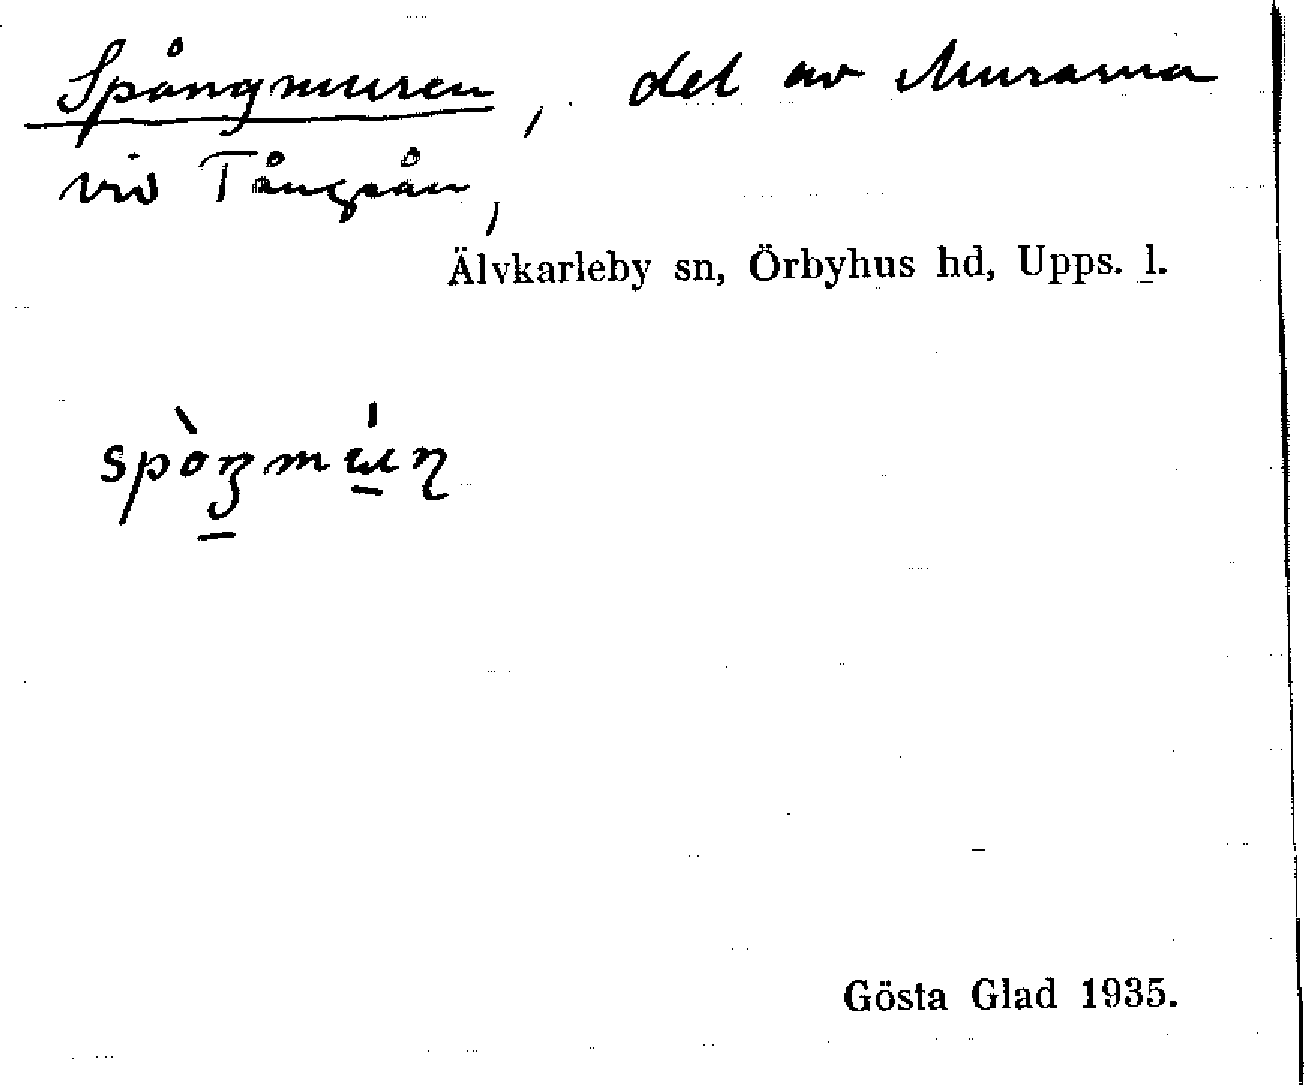 Spångmuren, del av Murarna
vid Tångsån,
Älvkarleby sn, Örbyhus hd, Upps. l.
Gösta Glad 1935.